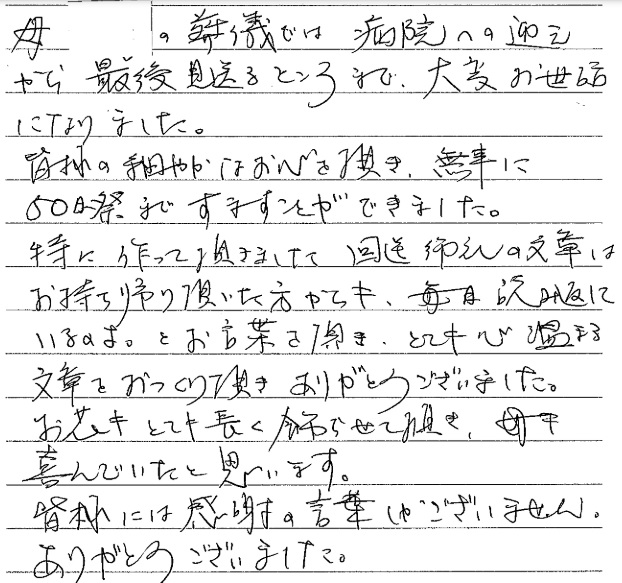 母 の葬儀では病院への迎え
から最後見送るところまで、大変お世話
になりました。
皆様の細やかなお心を頂き、無事に
50日祭まですますことができました。
特に作って頂きまして 回送 の文章は
お持ち帰り頂いた方からも、毎日読み返して
いるのよ。とお言葉を頂き、とても心温まる
文章をおつくり頂きありがとうございました。
お花もとても長く飾らせて頂き、母も
喜んでいたと思います。
皆様には感謝の言葉しかございません。
ありがとうございました。